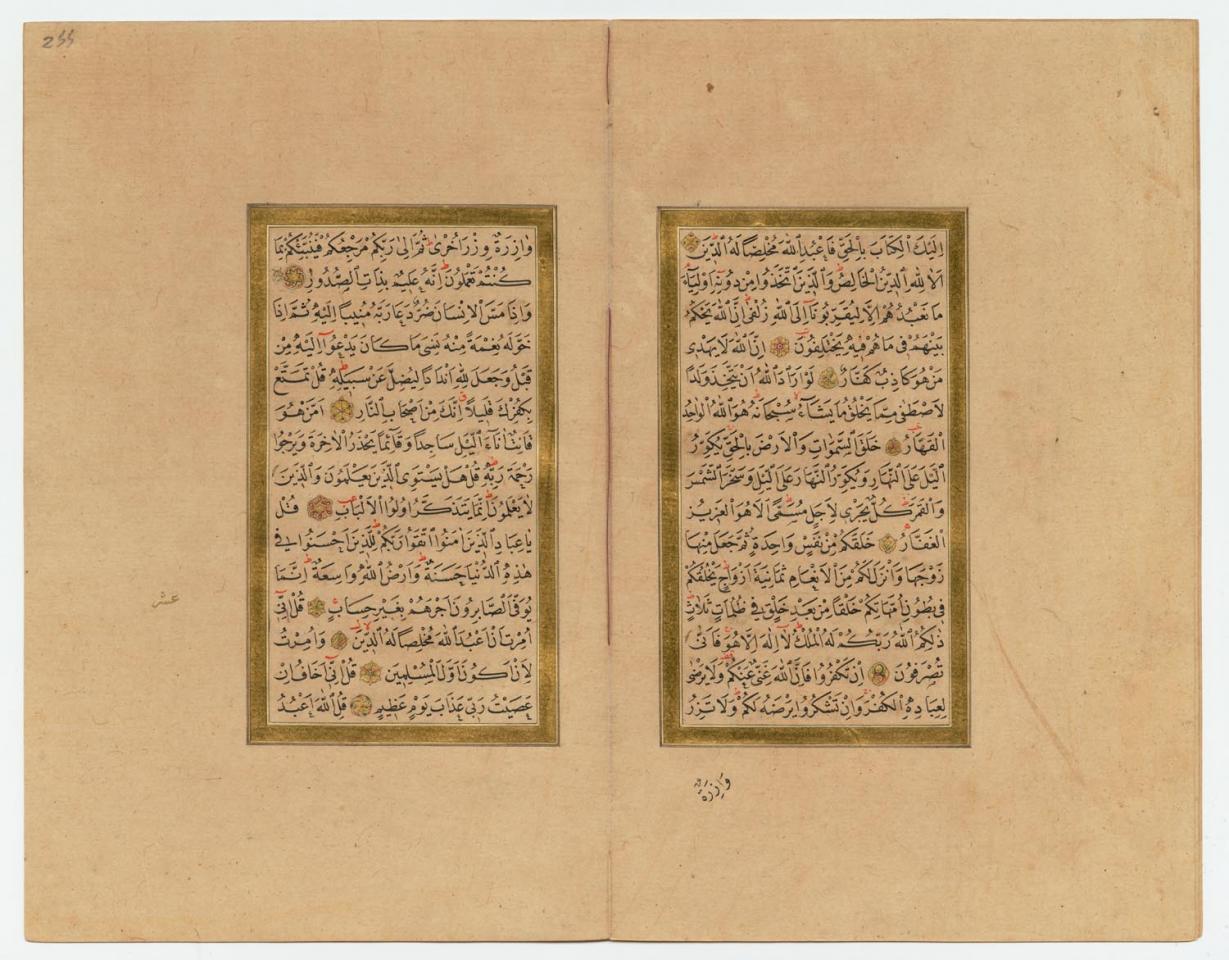 اِلَيْكَ الْكِتَابَ بِالْحَقِّ فَاعْبُدِ اللّٰهَ مُخْلِصاً لَهُ الدّٖينَ
اَلَا لِلّٰهِ الدّٖينُ الْخَالِصُ وَالَّذٖينَ اتَّخَذُوا مِنْ دُونِهٖ اَوْلِيَاءَ
مَا نَعْبُدُهُمْ اِلَّا لِيُقَرِّبُونَا اِلَى اللّٰهِ زُلْفٰى اِنَّ اللّٰهَ يَحْكُمُ
بَيْنَهُمْ فٖى مَا هُمْ فٖيهِ يَخْتَلِفُونَ اِنَّ اللّٰهَ لَا يَهْدٖى
مَنْ هُوَ كَاذِبٌ كَفَّارٌ لَوْ اَرَادَ اللّٰهُ اَنْ يَتَّخِذَ وَلَداً
لَاصْطَفٰى مِمَّا يَخْلُقُ مَا يَشَاءُ سُبْحَانَهُ هُوَ اللّٰهُ الْوَاحِدُ
الْقَهَّارُ خَلَقَ السَّمٰوَاتِ وَالْاَرْضَ بِالْحَقِّ يُكَوِّرُ
الَّيْلَ عَلَى النَّهَارِ وَيُكَوِّرُ النَّهَارَ عَلَى الَّيْلِ وَسَخَّرَ الشَّمْسَ
وَالْقَمَرَ كُلٌّ يَجْرٖى لِاَجَلٍ مُسَمًّى اَلَا هُوَ الْعَزٖيزُ
الْغَفَّارُ خَلَقَكُمْ مِنْ نَفْسٍ وَاحِدَةٍ ثُمَّ جَعَلَ مِنْهَا
زَوْجَهَا وَاَنْزَلَ لَكُمْ مِنَ الْاَنْعَامِ ثَمَانِيَةَ اَزْوَاجٍ يَخْلُقُكُمْ
فٖى بُطُونِ اُمَّهَاتِكُمْ خَلْقاً مِنْ بَعْدِ خَلْقٍ فٖى ظُلُمَاتٍ ثَلَاثٍ
ذٰلِكُمُ اللّٰهُ رَبُّكُمْ لَهُ الْمُلْكُ لَا اِلٰهَ اِلَّا هُوَ فَاَنّٰى
تُصْرَفُونَ اِنْ تَكْفُرُوا فَاِنَّ اللّٰهَ غَنِىٌّ عَنْكُمْ وَلَا يَرْضٰى
لِعِبَادِهِ الْكُفْرَ وَاِنْ تَشْكُرُوا يَرْضَهُ لَكُمْ وَلَا تَزِرُ
وَازِرَةٌ
233
وَازِرَةٌ وِزْرَ اُخْرٰى ثُمَّ اِلٰى رَبِّكُمْ مَرْجِعُكُمْ فَيُنَبِّئُكُمْ بِمَا
كُنْتُمْ تَعْمَلُونَ اِنَّهُ عَلٖيمٌ بِذَاتِ الصُّدُورِ
وَاِذَا مَسَّ الْاِنْسَانَ ضُرٌّ دَعَا رَبَّهُ مُنٖيباً اِلَيْهِ ثُمَّ اِذَا
خَوَّلَهُ نِعْمَةً مِنْهُ نَسِىَ مَا كَانَ يَدْعُوا اِلَيْهِ مِنْ
قَبْلُ وَجَعَلَ لِلّٰهِ اَنْدَاداً لِيُضِلَّ عَنْ سَبٖيلِهٖ قُلْ تَمَتَّعْ
بِكُفْرِكَ قَلٖيلاً اِنَّكَ مِنْ اَصْحَابِ النَّارِ اَمَّنْ هُوَ
قَانِتٌ اٰنَاءَ الَّيْلِ سَاجِداً وَقَائِماً يَحْذَرُ الْاٰخِرَةَ وَيَرْجُوا
رَحْمَةَ رَبِّهٖ قُلْ هَلْ يَسْتَوِى الَّذٖينَ يَعْلَمُونَ وَالَّذٖينَ
لَا يَعْلَمُونَ اِنَّمَا يَتَذَكَّرُ اُولُوا الْاَلْبَابِ قُلْ
يَا عِبَادِ الَّذٖينَ اٰمَنُوا اتَّقُوا رَبَّكُمْ لِلَّذٖينَ اَحْسَنُوا فٖى
هٰذِهِ الدُّنْيَا حَسَنَةٌ وَاَرْضُ اللّٰهِ وَاسِعَةٌ اِنَّمَا
يُوَفَّى الصَّابِرُونَ اَجْرَهُمْ بِغَيْرِ حِسَابٍ قُلْ اِنّٖى
اُمِرْتُ اَنْ اَعْبُدَ اللّٰهَ مُخْلِصاً لَهُ الدّٖينَ وَاُمِرْتُ
لِاَنْ اَكُونَ اَوَّلَ الْمُسْلِمٖينَ قُلْ اِنّٖى اَخَافُ اِنْ
عَصَيْتُ رَبّٖى عَذَابَ يَوْمٍ عَظٖيمٍ قُلِ اللّٰهَ اَعْبُدُ
عشر